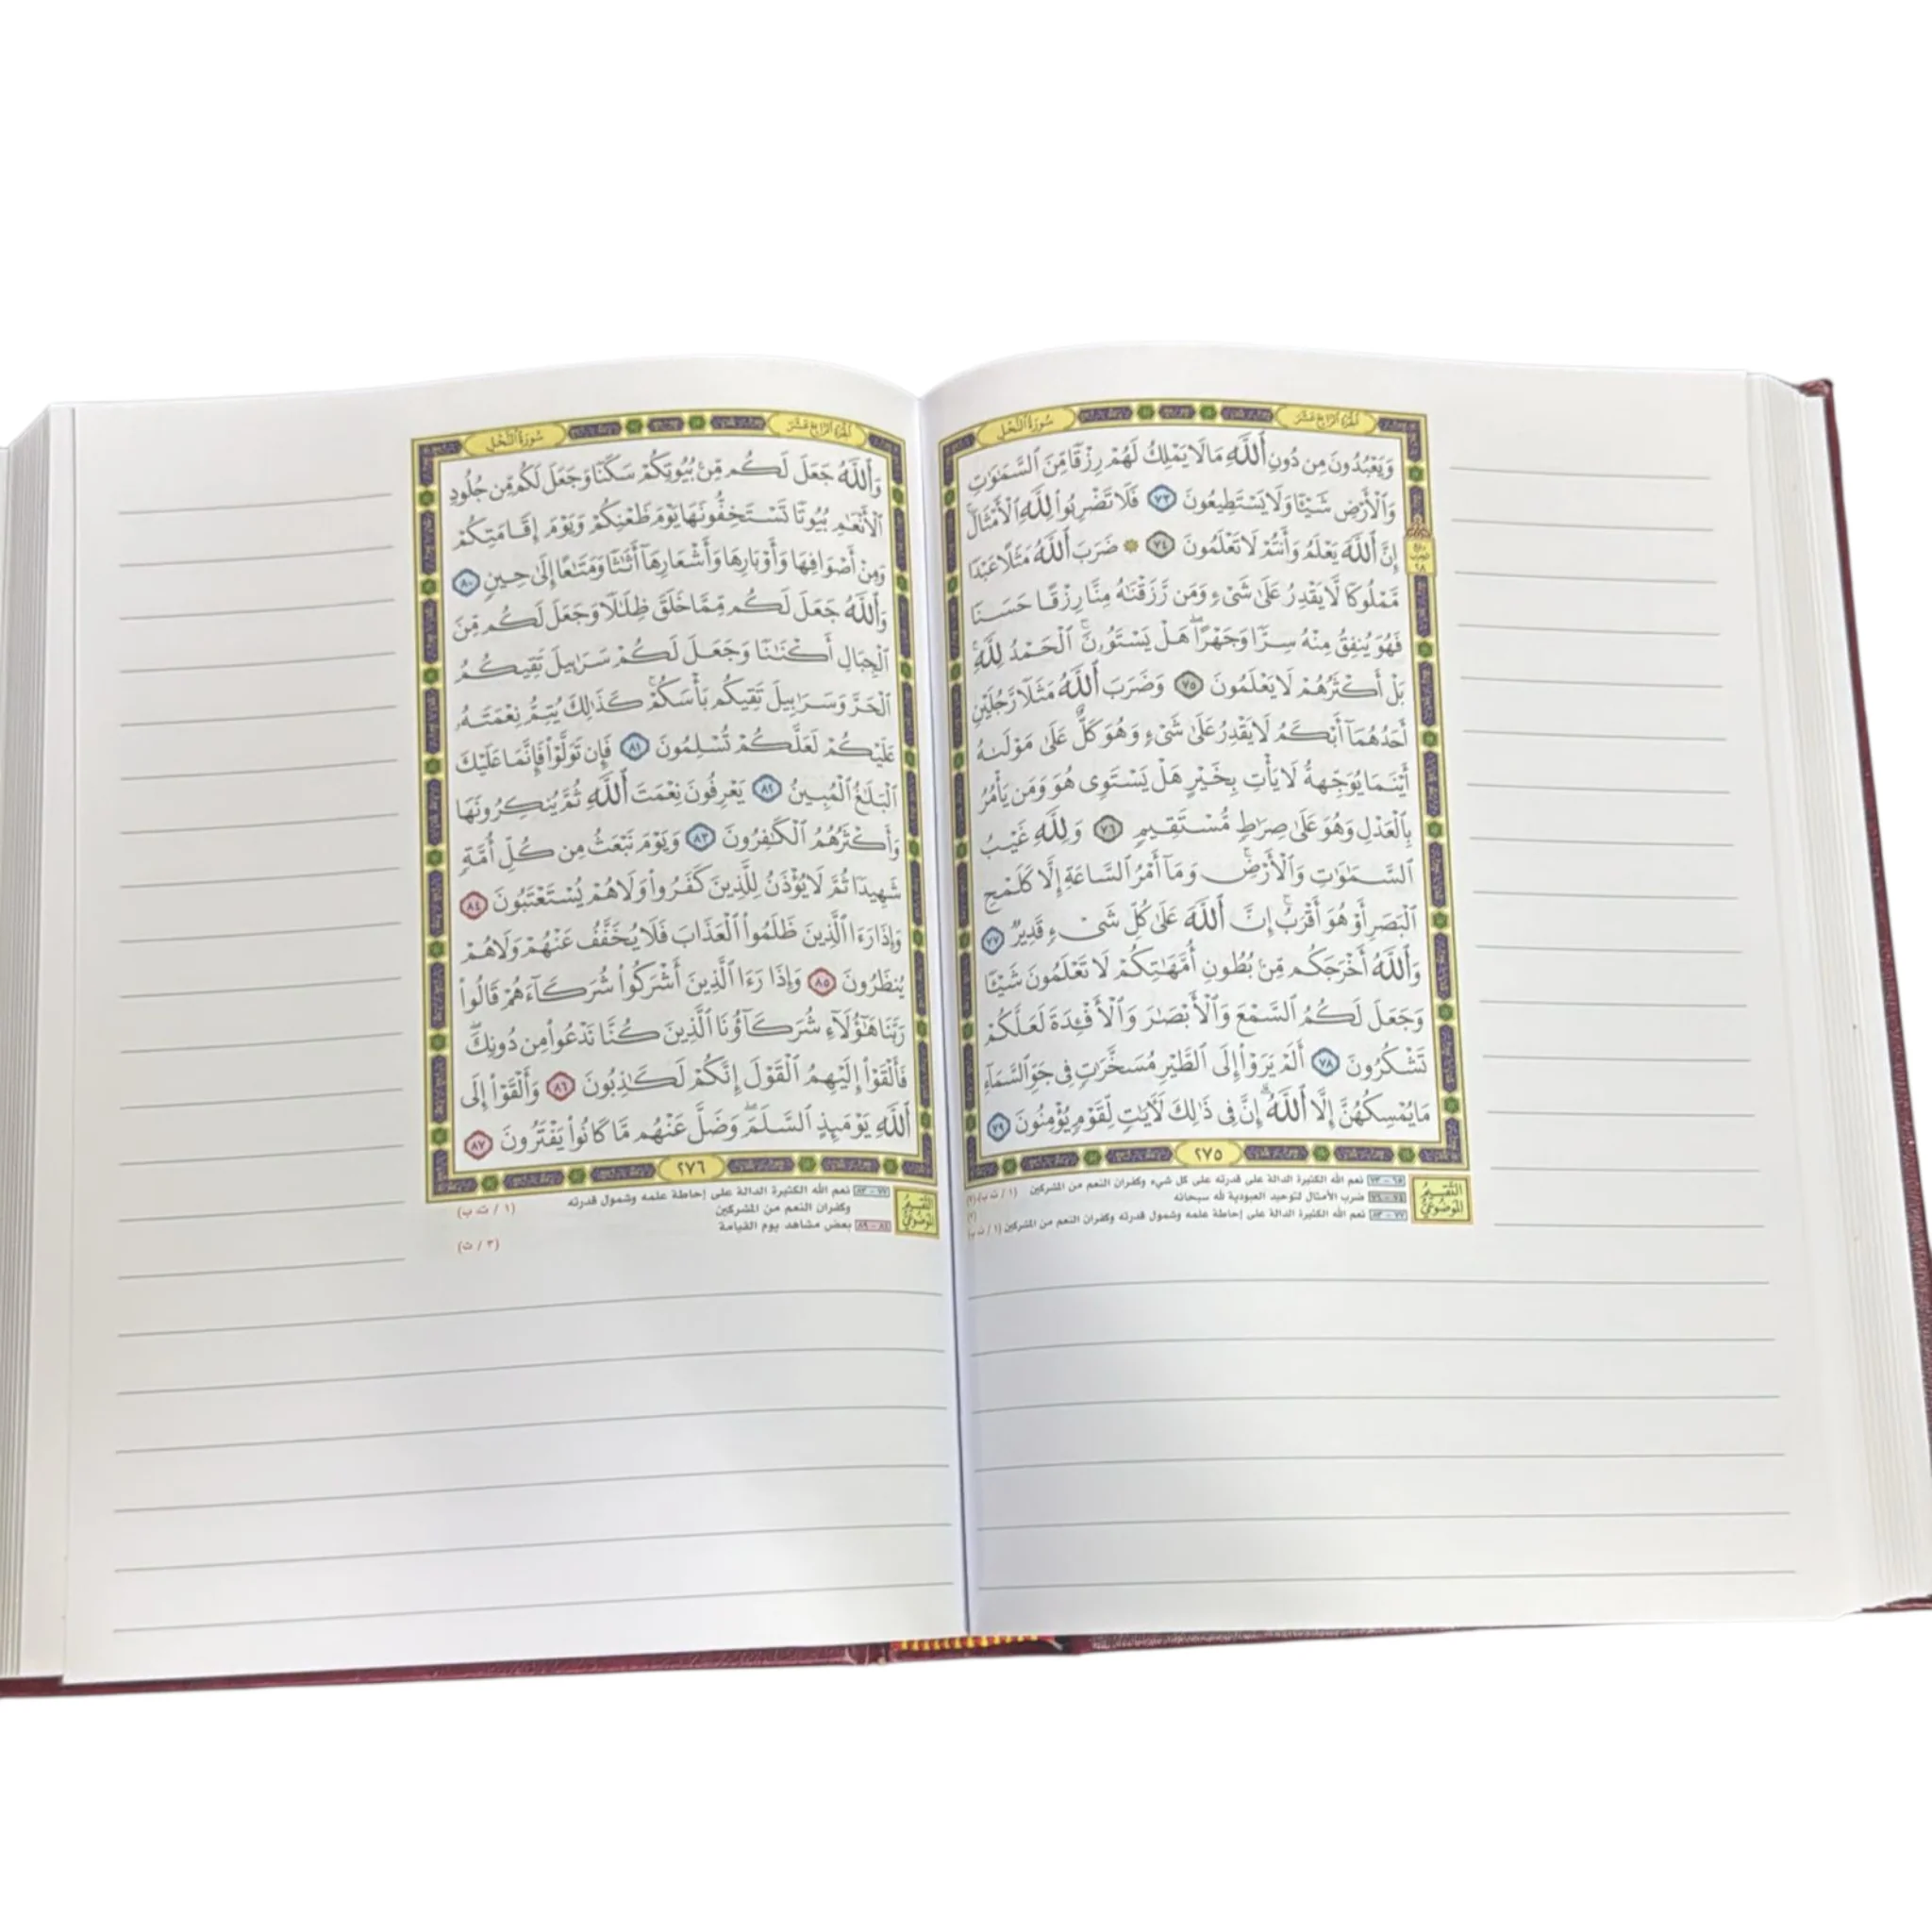 سُورَةُ النَّحْلِ الجُزْءُ الرَّابِعَ عَشَرَ
وَيَعْبُدُونَ مِن دُونِ ٱللَّهِ مَا لَا يَمْلِكُ لَهُمْ رِزْقًا مِّنَ ٱلسَّمَٰوَٰتِ
وَٱلْأَرْضِ شَيْـًٔا وَلَا يَسْتَطِيعُونَ ٧٣ فَلَا تَضْرِبُوا۟ لِلَّهِ ٱلْأَمْثَالَ ۚ
إِنَّ ٱللَّهَ يَعْلَمُ وَأَنتُمْ لَا تَعْلَمُونَ ٧٤ ۞ ضَرَبَ ٱللَّهُ مَثَلًا عَبْدًا
مَّمْلُوكًا لَّا يَقْدِرُ عَلَىٰ شَىْءٍ وَمَن رَّزَقْنَٰهُ مِنَّا رِزْقًا حَسَنًا
فَهُوَ يُنفِقُ مِنْهُ سِرًّا وَجَهْرًا ۖ هَلْ يَسْتَوُۥنَ ۚ ٱلْحَمْدُ لِلَّهِ ۚ
بَلْ أَكْثَرُهُمْ لَا يَعْلَمُونَ ٧٥ وَضَرَبَ ٱللَّهُ مَثَلًا رَّجُلَيْنِ
أَحَدُهُمَآ أَبْكَمُ لَا يَقْدِرُ عَلَىٰ شَىْءٍ وَهُوَ كَلٌّ عَلَىٰ مَوْلَىٰهُ
أَيْنَمَا يُوَجِّههُّ لَا يَأْتِ بِخَيْرٍ هَلْ يَسْتَوِى هُوَ وَمَن يَأْمُرُ
بِٱلْعَدْلِ وَهُوَ عَلَىٰ صِرَٰطٍ مُّسْتَقِيمٍ ٧٦ وَلِلَّهِ غَيْبُ
ٱلسَّمَٰوَٰتِ وَٱلْأَرْضِ ۚ وَمَآ أَمْرُ ٱلسَّاعَةِ إِلَّا كَلَمْحِ
ٱلْبَصَرِ أَوْ هُوَ أَقْرَبُ ۚ إِنَّ ٱللَّهَ عَلَىٰ كُلِّ شَىْءٍ قَدِيرٌ ٧٧
وَٱللَّهُ أَخْرَجَكُم مِّنۢ بُطُونِ أُمَّهَٰتِكُمْ لَا تَعْلَمُونَ شَيْـًٔا
وَجَعَلَ لَكُمُ ٱلسَّمْعَ وَٱلْأَبْصَٰرَ وَٱلْأَفْـِٔدَةَ لَعَلَّكُمْ
تَشْكُرُونَ ٧٨ أَلَمْ يَرَوْا۟ إِلَى ٱلطَّيْرِ مُسَخَّرَٰتٍ فِى جَوِّ ٱلسَّمَآءِ
مَا يُمْسِكُهُنَّ إِلَّا ٱللَّهُ ۗ إِنَّ فِى ذَٰلِكَ لَءَايَٰتٍ لِّقَوْمٍ يُؤْمِنُونَ ٧٩
٢٧٥
التقسيم الموضوعي
٦٥ - ٧٣ نعم الله الكثيرة الدالة على قدرته على كل شيء وكفران النعم من المشركين (١ / ث ب)
٧٤ - ٧٦ ضرب الأمثال لتوحيد العبودية لله سبحانه
٧٧ - ٨٣ نعم الله الكثيرة الدالة على إحاطة علمه وشمول قدرته وكفران النعم من المشركين
سُورَةُ النَّحْلِ الجُزْءُ الرَّابِعَ عَشَرَ
وَٱللَّهُ جَعَلَ لَكُم مِّنۢ بُيُوتِكُمْ سَكَنًا وَجَعَلَ لَكُم مِّن جُلُودِ
ٱلْأَنْعَٰمِ بُيُوتًا تَسْتَخِفُّونَهَا يَوْمَ ظَعْنِكُمْ وَيَوْمَ إِقَامَتِكُمْ
وَمِنْ أَصْوَافِهَا وَأَوْبَارِهَا وَأَشْعَارِهَآ أَثَٰثًا وَمَتَٰعًا إِلَىٰ حِينٍ ٨٠
وَٱللَّهُ جَعَلَ لَكُم مِّمَّا خَلَقَ ظِلَٰلًا وَجَعَلَ لَكُم مِّنَ
ٱلْجِبَالِ أَكْنَٰنًا وَجَعَلَ لَكُمْ سَرَٰبِيلَ تَقِيكُمُ
ٱلْحَرَّ وَسَرَٰبِيلَ تَقِيكُم بَأْسَكُمْ ۚ كَذَٰلِكَ يُتِمُّ نِعْمَتَهُۥ
عَلَيْكُمْ لَعَلَّكُمْ تُسْلِمُونَ ٨١ فَإِن تَوَلَّوْا۟ فَإِنَّمَا عَلَيْكَ
ٱلْبَلَٰغُ ٱلْمُبِينُ ٨٢ يَعْرِفُونَ نِعْمَتَ ٱللَّهِ ثُمَّ يُنكِرُونَهَا
وَأَكْثَرُهُمُ ٱلْكَٰفِرُونَ ٨٣ وَيَوْمَ نَبْعَثُ مِن كُلِّ أُمَّةٍ
شَهِيدًا ثُمَّ لَا يُؤْذَنُ لِلَّذِينَ كَفَرُوا۟ وَلَا هُمْ يُسْتَعْتَبُونَ ٨٤
وَإِذَا رَءَا ٱلَّذِينَ ظَلَمُوا۟ ٱلْعَذَابَ فَلَا يُخَفَّفُ عَنْهُمْ وَلَا هُمْ
يُنظَرُونَ ٨٥ وَإِذَا رَءَا ٱلَّذِينَ أَشْرَكُوا۟ شُرَكَآءَهُمْ قَالُوا۟
رَبَّنَا هَٰٓؤُلَآءِ شُرَكَآؤُنَا ٱلَّذِينَ كُنَّا نَدْعُوا۟ مِن دُونِكَ ۖ
فَأَلْقَوْا۟ إِلَيْهِمُ ٱلْقَوْلَ إِنَّكُمْ لَكَٰذِبُونَ ٨٦ وَأَلْقَوْا۟ إِلَى
ٱللَّهِ يَوْمَئِذٍ ٱلسَّلَمَ ۖ وَضَلَّ عَنْهُم مَّا كَانُوا۟ يَفْتَرُونَ ٨٧
٢٧٦
التقسيم الموضوعي
٧٧ - ٨٣ نعم الله الكثيرة الدالة على إحاطة علمه وشمول قدرته
وكفران النعم من المشركين (١ / ث ب)
٨٤ - ٨٩ بعض مشاهد يوم القيامة (٣ / ث)